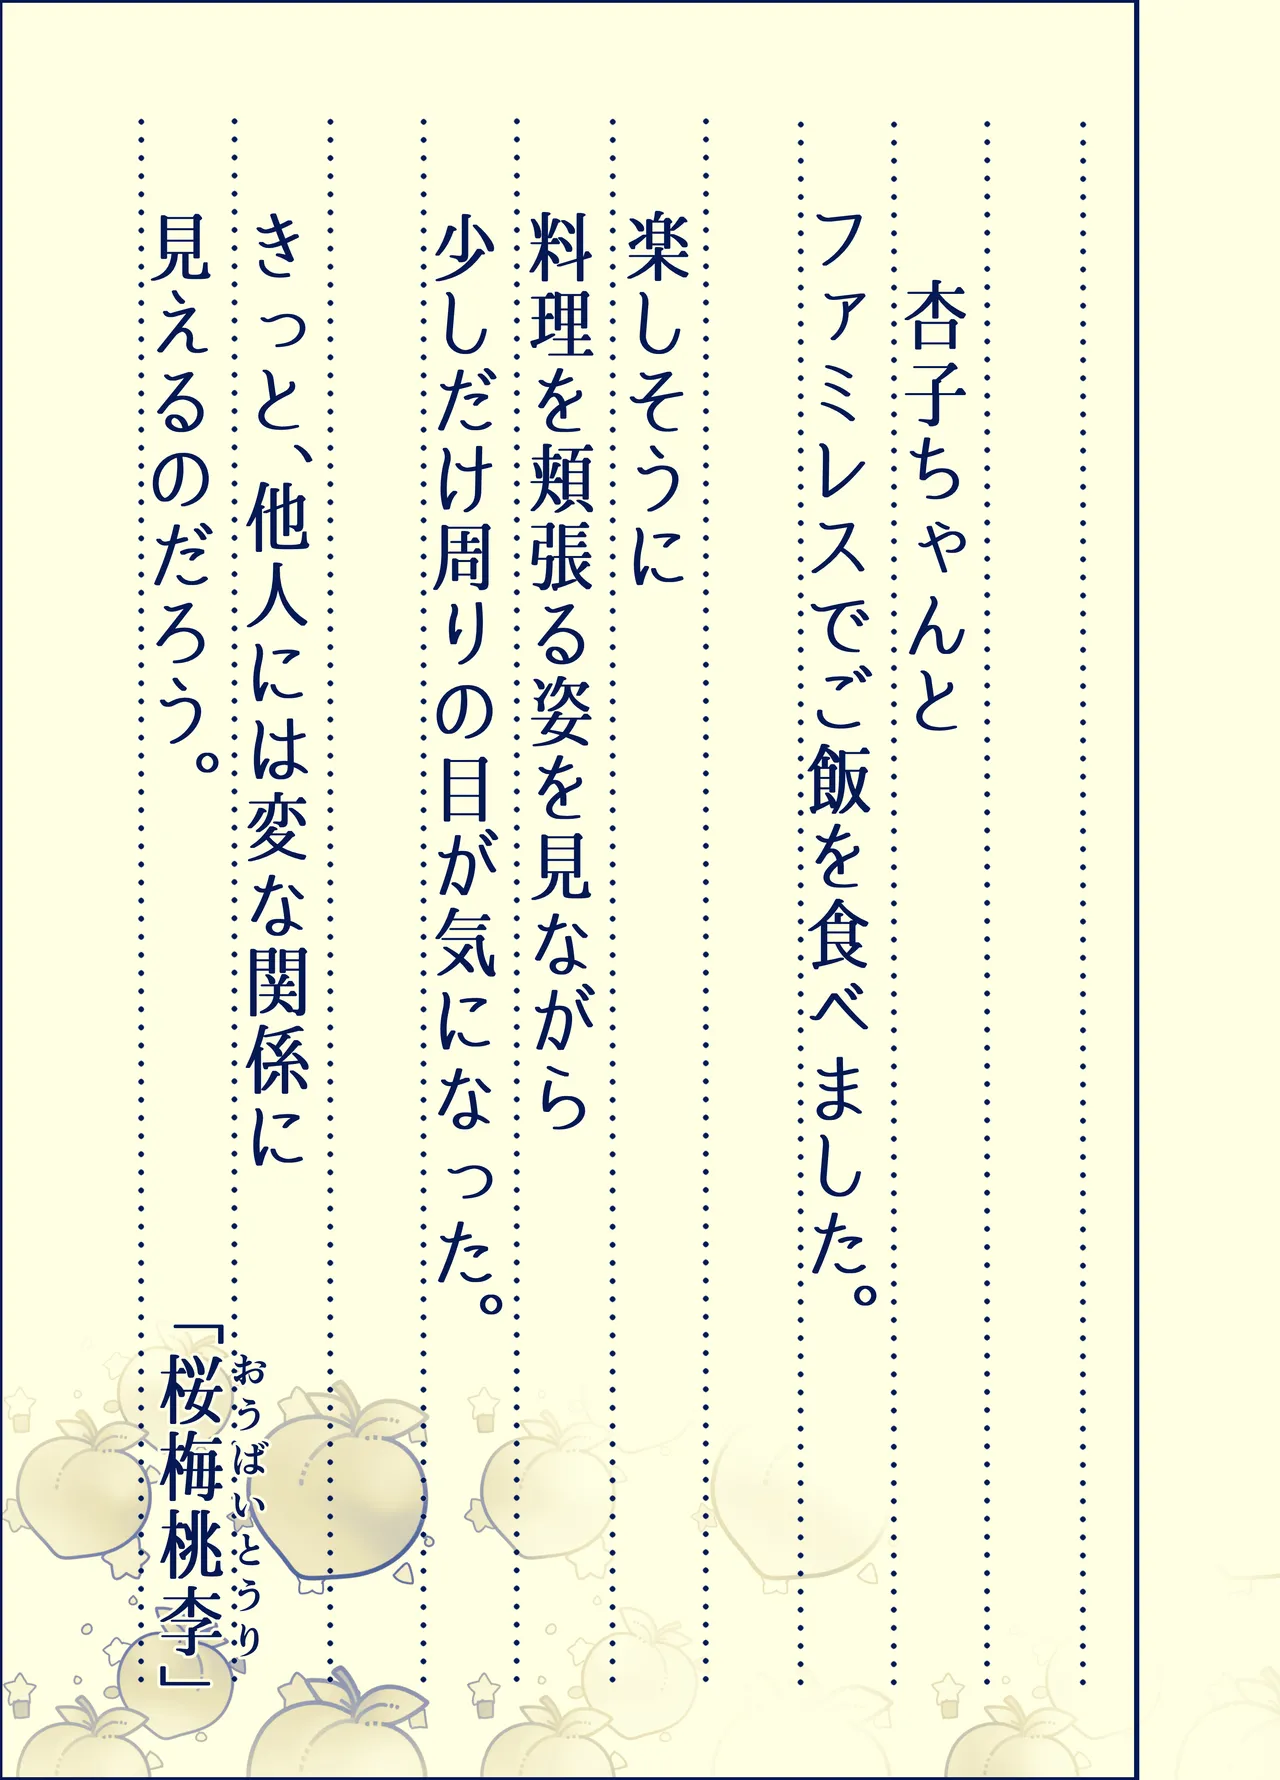 杏子ちゃんと
ファミレスでご飯を食べました。
楽しそうに
料理を頬張る姿を見ながら
少しだけ周りの目が気になった。
きっと、他人には変な関係に
見えるのだろう。
「桜梅桃李」
おうばいとうり